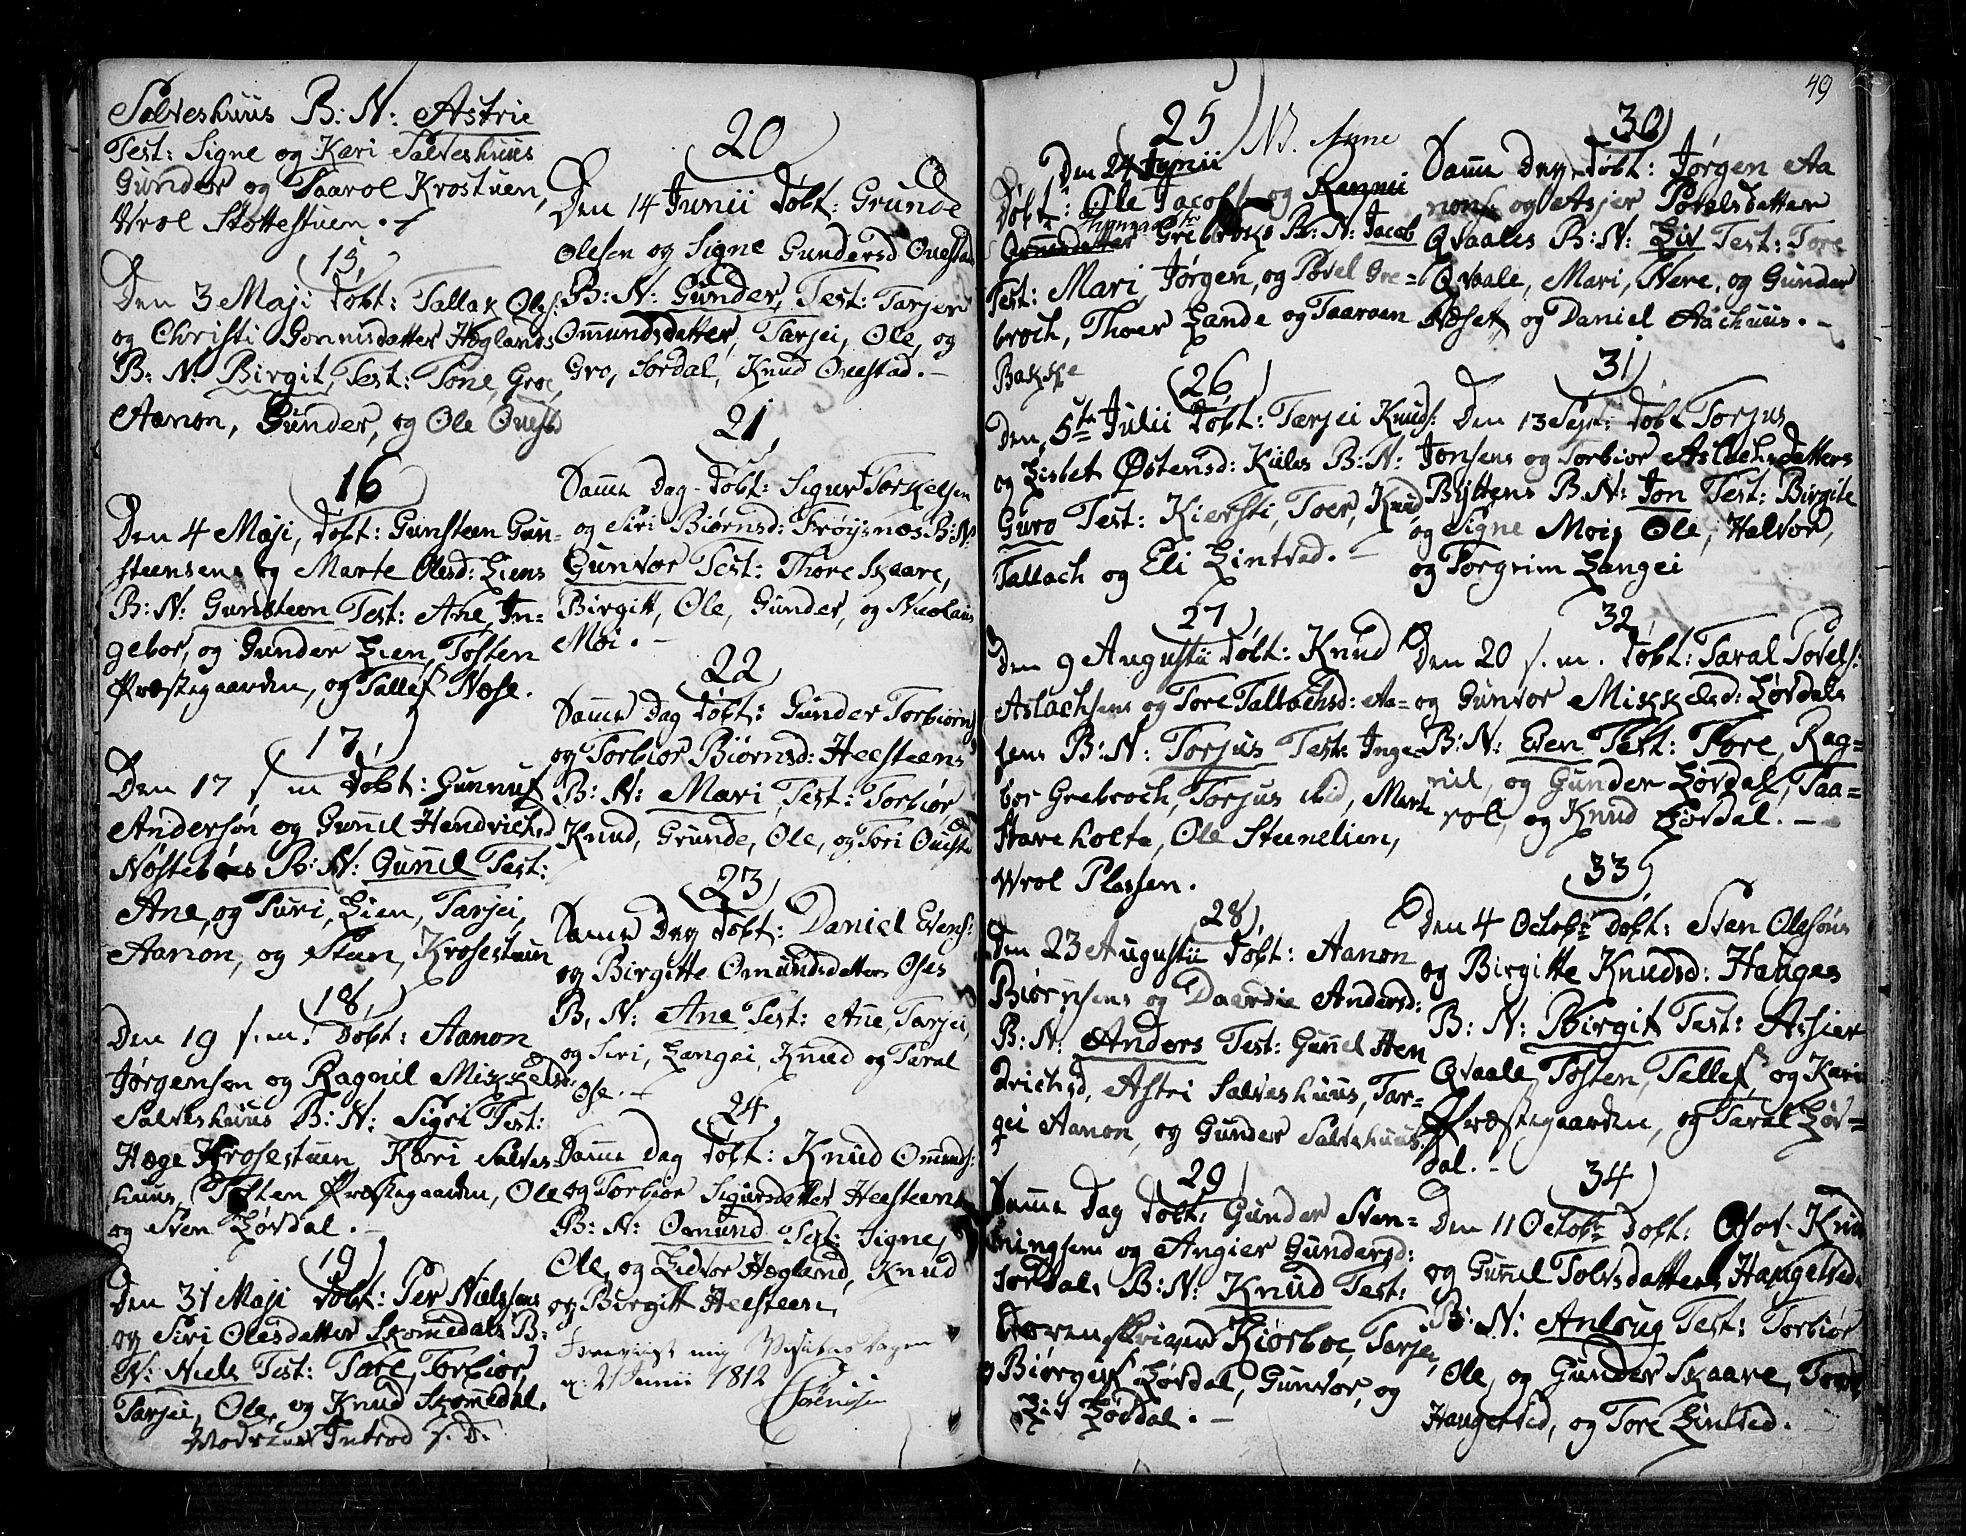 Salveshuus B: N: Astrie
Test: Signe og Kari Salveshuus
Gunder og Taarol Krostuen,
Wrol Støttestuen.
15,
Den 3 Maji Døbt: Tallax Ols:
og Christi Gonnisdatter Hæglands
B: N: Birgit, Test: Tone, Gro,
Aanon, Gunder, og Ole Ouestad
16
Den 4 Maji, Døbt: Gunsteen Gun-
steensens og Marte Olesd: Liens
B: N: Gunsteen Test: Ane, In-
gebor, og Gunder Lien, Tosten
Præstegaarden, og Tallef Næse.
17,
Den 17 s. m Døbt: Gunnuf
Andersøn og Gunnil Hendrichsd
Nøsteböes B: N: Gunnil Test:
Ane, og Turi, Lien, Tarjei,
Aanon, og Steen, Krosestuen
18,
Den 19 s. m. Døbt: Aanon
Jørgensen og Ragnil Mikkelsd
Salveshuus B: N: Sigri Test:
Hæge Krosestuen, Kari Salves-
huus, Tosten Præstegaarden, Ole
og Sven Lørdal.
19
Den 31 Maji Døbt: Per Nielsens
og Siri Olesdatter Skomedals B:
N: Niels Test: Tare, Torbior,
Tarjei, Ole, og Knud Skomedal.
Modren Introd s. D.
20
Den 14 Junii Døbt: Grunde
Olesen og Signe Gundersd Ouestad
B: N: Gunder, Test: Tarjer
Ommundsdatter, Tarjei, Ole, og
Gro, Sordal, Knud Ouestad.
21,
Samme Dag Døbt: Sigur Torkelsen
og Siri Biørnsd: Frøysnæs B: N:
Gunvor Test: Thore Skaare,
Birgitt, Ole, Gunder, og Nicolaus
Moi.
22
Samme Dag Døbt: Gunder Torbiørns
og Torbior Biörnsd: Heesteens
B: N: Mari, Test: Torbiør,
Knud, Grunde, Ole, og Tori Ouesta
23
Samme Dag Døbt: Daniel Evens:
og Birgitte Omundsdatters Oses
B, N: Ane Test: Ane, Tarjei,
og Siri, Langei, Knud og Taral
Ose.
24
Samme Dag Døbt: Knud Ommunds:
og Torbior Sigursdatter Heesteens
B: N: Omund Test: Signe,
Ole, og Lidvor Hægland, Knud
og Birgitt Heesteen,
Foreviist mig Visitasdagen
21 Junii 1812
Sörensen
49
25 NB. Anne
Den 24 Junii
Døbt: Ole Jacobs og
Grebroks B: N: Jacob
Test: Mari, Jørgen, og Povel Gre-
broch, Thoer Lande og Taaroen
Bakke
26,
Den 5te Julii Døbt: Tarjei Knuds:
og Lisbet Østensd: Kules B: N:
Guro Test: Kiersti, Toer, Knud,
Tallach og Eli Lintved.
27
Den 9 Augustii Døbt: Knud
Aslachsens og Tore Tallachsd: Aa-
sens B: N: Torjus Test: Inge-
bor Grebroch, Torjus ibid, Marte
Hareholte, Ole Steenelien,
Wrol Plassen.
28,
Den 23 Augustii Døbt: Aanon
Biørnsens og Daardie Andersd:
B: N: Anders Test: Gunnil Hen
drichsd, Astri Salveshuus, Tar-
gei Aanon, og Gunder Salveshuus.
29
Samme Dag Døbt: Gunder Sven-
ningsens og Angier Gundersd:
Sordals B: N: Knud Test:
Sorenskriver Kiørboe, Tarjei,
og Biørguf Lørdal, Gunvor, og
Liv Lørdal.
30
Samme Dag Døbt: Jørgen Aa
nons og Asjer Povelsdatter
Qvaales B: N: Liv Test: Tore
Qvaale, Mari, Nere, og Gunder
Næset, og Daniel Aachuus.
31,
Den 13 Sept: Døbt Torjus
Jonsens og Torbior Aslachsdatters
Byttens B: N: Jon Test: Birgite
og Signe Moi, Ole, Halvor,
og Torgrim Langei
32,
Den 20 s. m. Døbt: Taral Povels:
og Gunvor Mikkelsd: Lørdals
B: N: Even Test: Tore, Rag-
nil, og Gunder Lørdal, Taa-
rol, og Knud Lørdal.
33,
Den 4 Octobr Døbt: Sven Olesøns
og Birgitte Knudsd: Hauges
B: N: Birgit Test: Assier
Qvaale, Tosten, Tallef, og Kari
Præstegaarden, og Taral Lør-
dal.
34
Den 11 Octobr Døbt: Osov Knud
og Gunnil Tolvsdatters Haugetveds
B: N: Anlaug Test: Torbiør
Ole, og Gunder Skaare, Tore
Haugetved, og Tore Lintved.